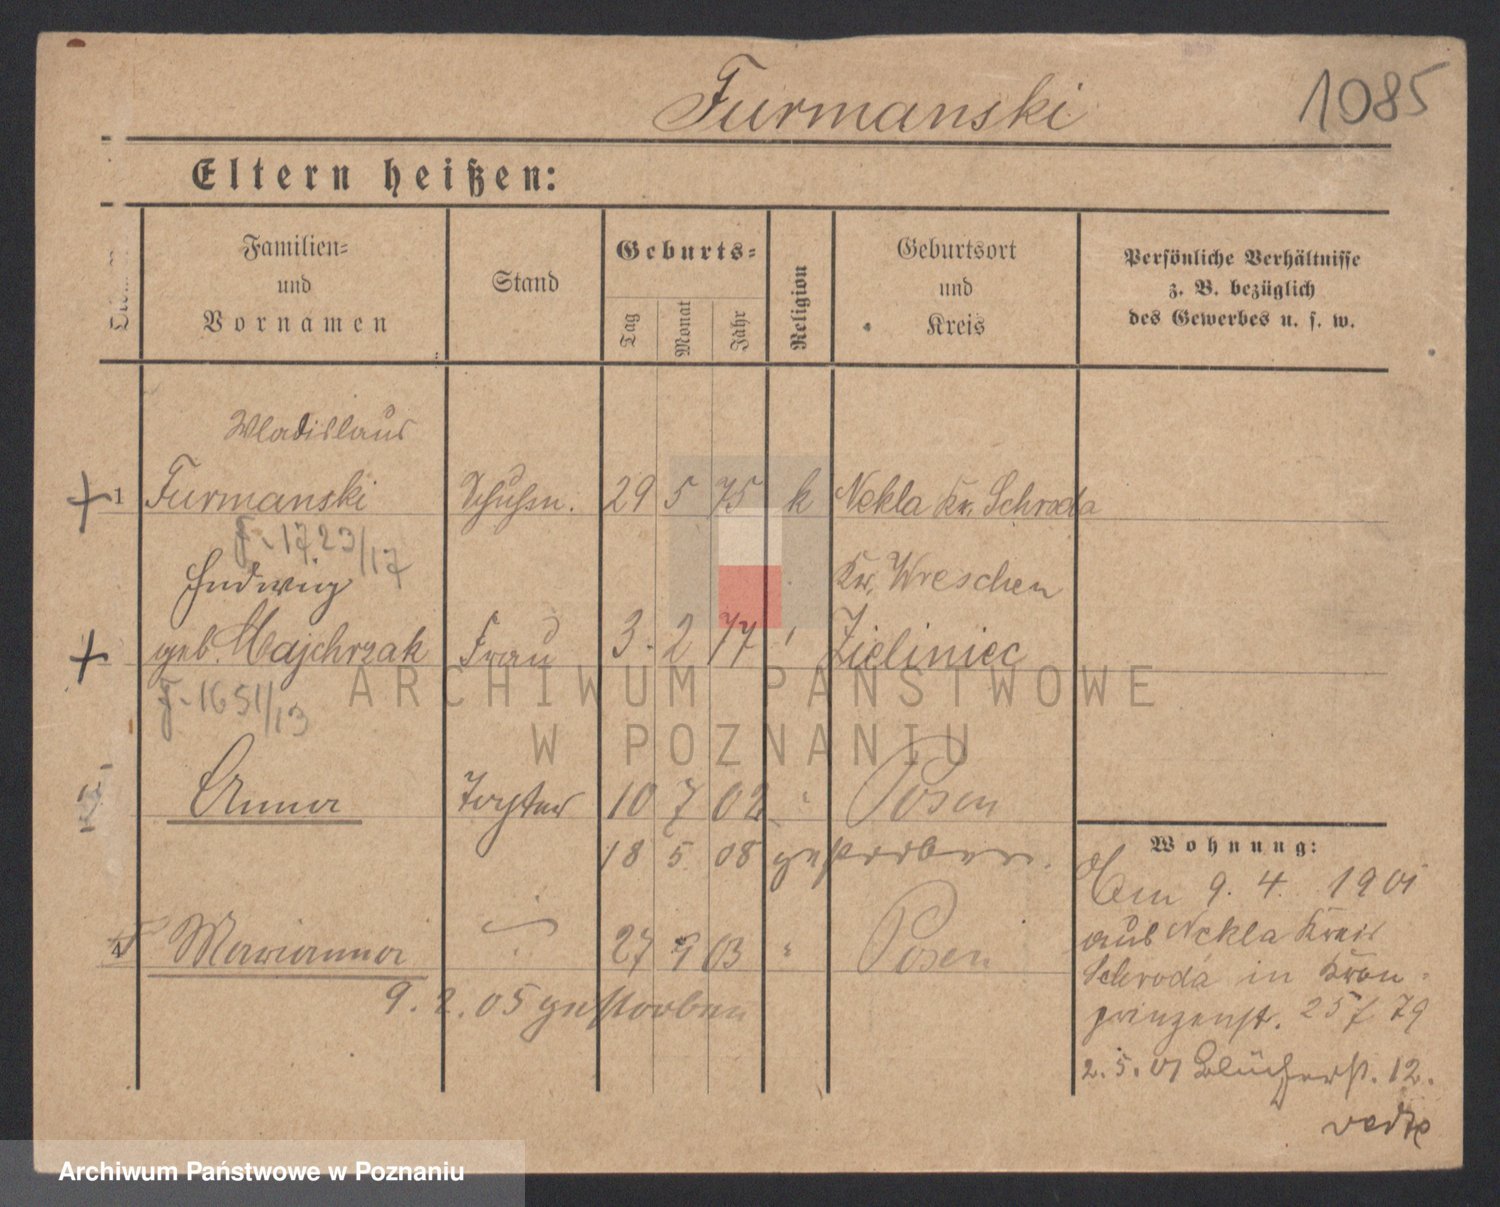 Furmanski 1085
Eltern heißen:
Familien=
und
Vornamen
Stand
Geburts=
Tag
Monat
Jahr
Religion
Geburtsort
und
Kreis
Persönliche Verhältnisse
z. B. bezüglich
des Gewerbes u. s. w.
Wladislaus
1 Furmanski Schuhm. 29 5 75 k Nekla Kr. Schroda
F-1723/17
Hedwig Kr. Wreschen
geb. Majchrzak Frau 3. 2 77 " Zieliniec
F-1651/13
Anna Tochter 10 7 02 " Posen
18 5 08 gestorben.
4 Marianna " 27 9 03 " Posen
9. 2. 05 gestorben
Wohnung:
Am 9. 4. 1901
aus Nekla Kreis
Schroda in Kron-
prinzenst. 25/79
2. 5. 01 Blücherst. 12.
ARCHIWUM PAŃSTWOWE
W POZNANIU
Archiwum Państwowe w Poznaniu